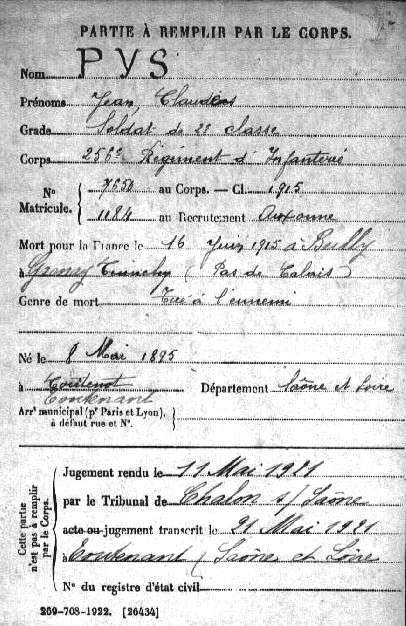 PARTIE À REMPLIR PAR LE CORPS.
Nom PYS
Prénoms Jean, Claudius
Grade Soldat de 2e classe
Corps 256e Régiment d'Infanterie
No Matricule. 7654 au Corps. — Cl. 1915
1184 au Recrutement Auxonne
Mort pour la France le 16 Juin 1915 à Bully
à Grenay (Pas de Calais)
Genre de mort Tué à l'ennemi
Né le 8 Mai 1895
à Toutenot Département Saône et Loire
Toutenant
Arrt municipal (pr Paris et Lyon),
à défaut rue et No.
Cette partie n'est pas à remplir par le Corps.
Jugement rendu le 11 Mai 1921
par le Tribunal de Chalon s/ Saône
acte ou jugement transcrit le 21 Mai 1921
à Toutenant (Saône et Loire
No du registre d'état civil
259-708-1922. [26434]